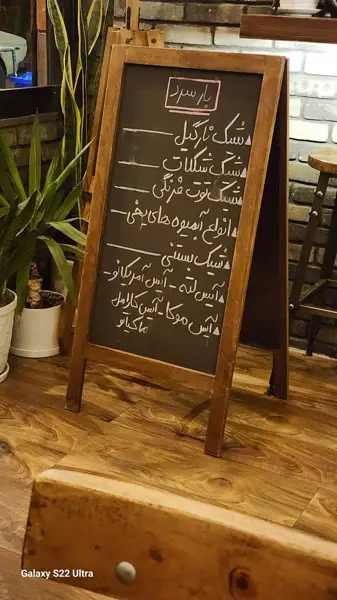 بار سرد
شیک نارگیل
شیک شکلات
شیک توت فرنگی
انواع آبمیوه های یخی
شیک بستنی
آیس لته - آیس آمریکانو -
آیس موکا - آیس کارامل
ماکیاتو
Galaxy S22 Ultra